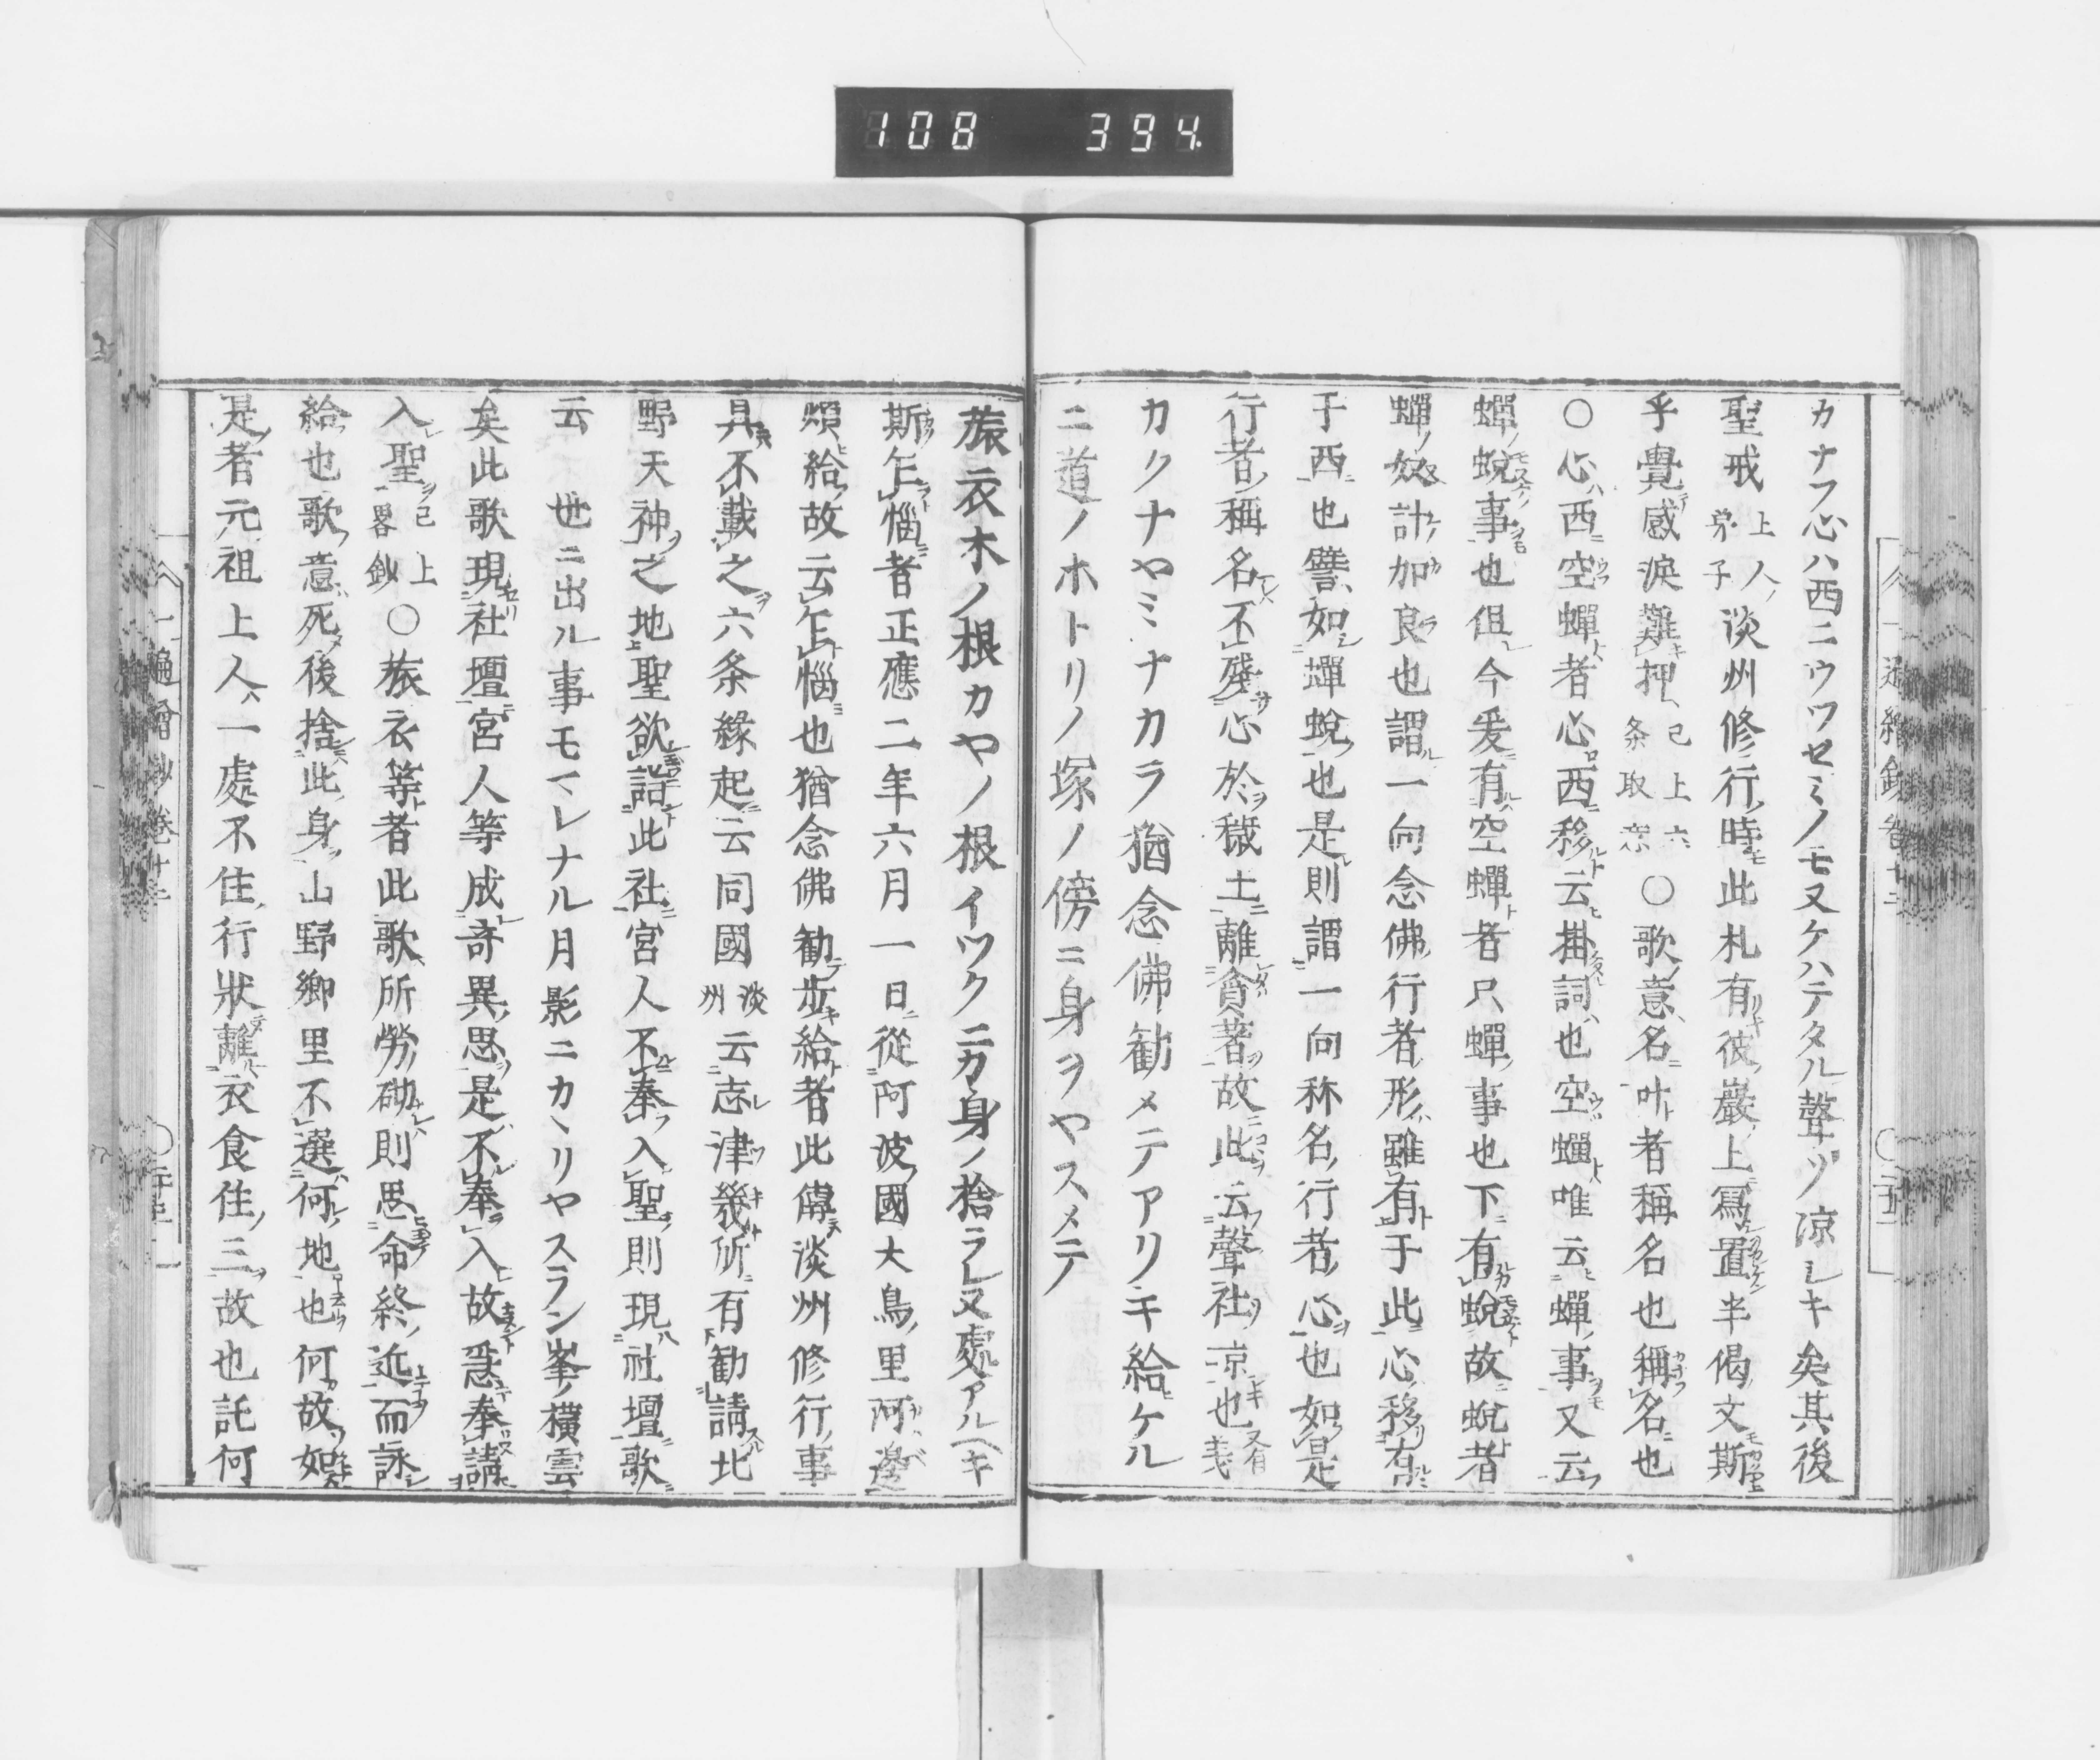 108 394.
カナフ心ハ西ニウツセミノモヌケハテタル聲ソ凉シキ矣其後
聖戒 上人ノ弟子 淡州修行ノ時モ此札有彼巖上寫置半偈文斯
乎覺感涙難押 已上六条取意 ○歌意名ニ叶ト者稱名也稱名也
○心ハ西ニ空蟬ト者心西ニ移云掛詞也空蟬ト唯云蟬事又云
蟬ノ蛻事也但今爰有空蟬者只蟬ノ事也下有蛻故蛻者
蟬ノ奴計加良也謂一向念佛行者形雖有于此心移有
于西也譬ハ如蟬蛻也是則謂一向称名行者心也如是
行者稱名不殘心於穢土離貪著故此云聲社凉也 又有義
カクナヤミナカラ猶念佛勸メテアリキ給ヒケル
ニ道ノホトリノ塚ノ傍ニ身ヲヤスメテ
旅衣木ノ根カヤノ根イツクニカ身ノ捨ラレヌ處アルヘキ
斯乍惱者正應二年六月一日從阿波國大鳥里阿邊
煩給故云乍惱也猶念佛勸歩給者此傳淡州修行事
具不載之六条緣起云同國 淡州 云志津幾所有勸請北
野天神之地聖欲詣此社宮人不奉入聖則現社壇歌
云 世ニ出ル事モマレナル月影ニカヽリヤスラン峯ノ橫雲
矣此歌現社壇宮人等成奇異思是不奉入故急奉請
入聖 已上畧鈔 ○旅衣等者此歌所勞砌則思命終近而詠
給也歌意死後捨此身山野鄉里不選何地也何故如
是者元祖上人ハ一處不住行狀離衣食住三故也託何
一遍繪鈔卷十二